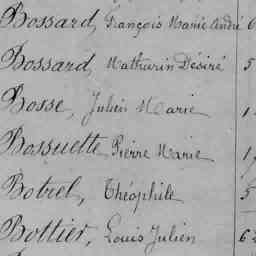 Bossard, François Marie André 6
Bossard, Mathurin Désiré 5
Bosse, Julien Marie 1
Bossuette Pierre Marie 1
Botrel, Théophile 5
Bottier, Louis Julien 6